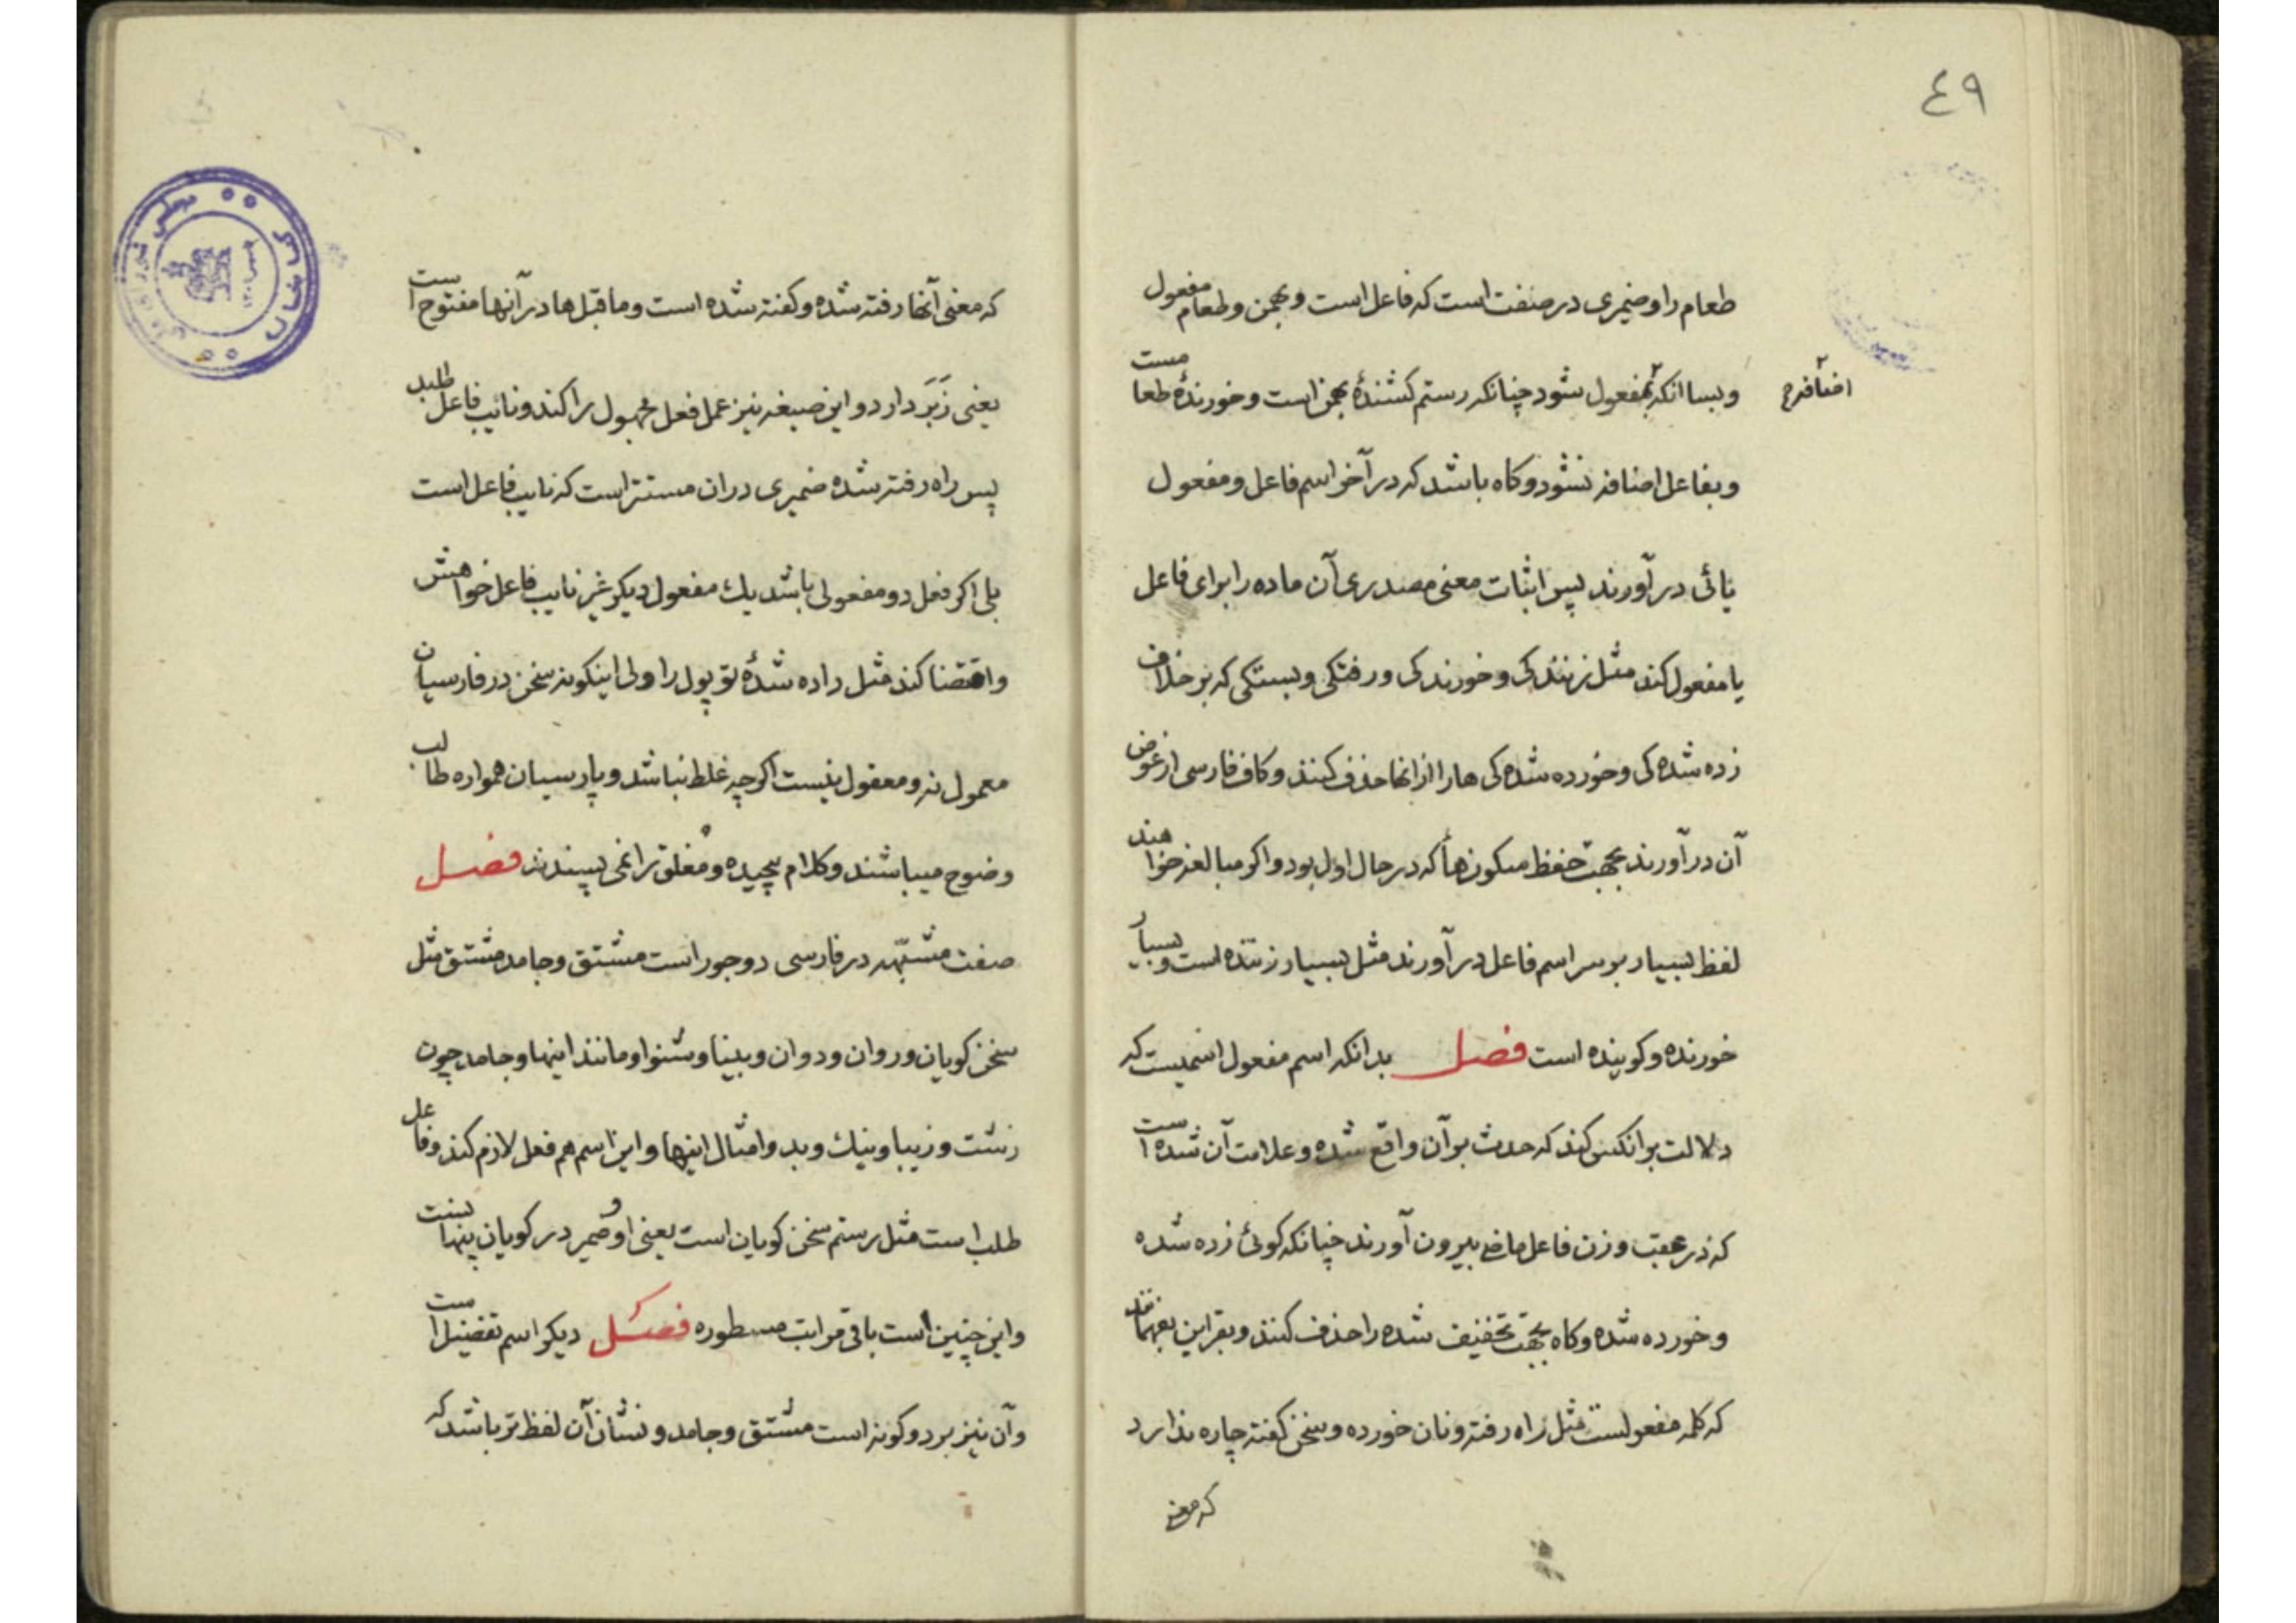 ٤٩
طعام را و ضمیری در صنفت است که فاعل است و بهمن و طعام مفعول
و بسا انکه بمفعول شود چنانکه رستم کشندهٔ بهمن است و خورندهٔ طعا مست
و بفاعل اضافه نشود و کاه باشد که در آخر اسم فاعل و مفعول
یائی در آورند پس اثبات معنی مصدری آن ماده را برای فاعل
یا مفعول کند مثل زنندکی و خورندکی و رفتکی و بستکی که بر خلاف
زده شده کی و خورده شده کی ها را از انها حذف کنند و کاف فارسی از عوض
آن در آورند بجهت حفظ سکون هأ که در حال اول بود و اکر مبالغه خواهند
لفظ بسیار بر سر اسم فاعل در آورند مثل بسیار زننده است و بسیار
خورنده و کوینده است فصل بدانکه اسم مفعول اسمیست که
دلالت بر انکس کند که حدث بر آن واقع شده و علامت آن شده است
که در عقب وزن فاعل ماضی بیرون آورند چنانکه کوئی زده شده
و خورده شده و کاه بجهت تخفیف شده را حذف کنند و بقراین بفهمانند
که کلمه مفعولست مثل راه رفته و نان خورده و سخن کفته چاره ندارد
که معنی
که معنی آنها رفته شده و کفته شده است و ما قبل ها در آنها مفتوح است
یعنی زَبَر دارد و این صیغه نیز عمل فعل مجهول را کند و نائب فاعل طلبد
پس راه رفته شده ضمیری در ان مستتر است که نایب فاعل است
بلی اکر فعل دو مفعولی باشد یك مفعول دیکر غیر نایب فاعل خواهش
و اقتضا کند مثل داده شدهٔ تو پول را ولی اینکونه سخن در فارسیان
معمول نه و معقول نیست اکر چه غلط نباشد و پارسیان همواره طالب
وضوح میباشند و کلام پیچیده و مغلق را نمی پسندند فصل
صفت مشبّهه در فارسی دو جور است مشتق و جامد مشتق مثل
سخن کویان و روان و دوان و بینا و شنوا و مانند اینها و جامد چون
زشت و زیبا و نیك و بد و امثال اینها و این اسم هم فعل لازم کند و فاعل
طلب است مثل رستم سخن کویان است یعنی او و ضمیر در کویان پنهانست
و این چنین است باقی مراتب مسطوره فصل دیکر اسم تفضیل است
و آن نیز بر دو کونه است مشتق و جامد و نشان آن لفظ تر باشد که